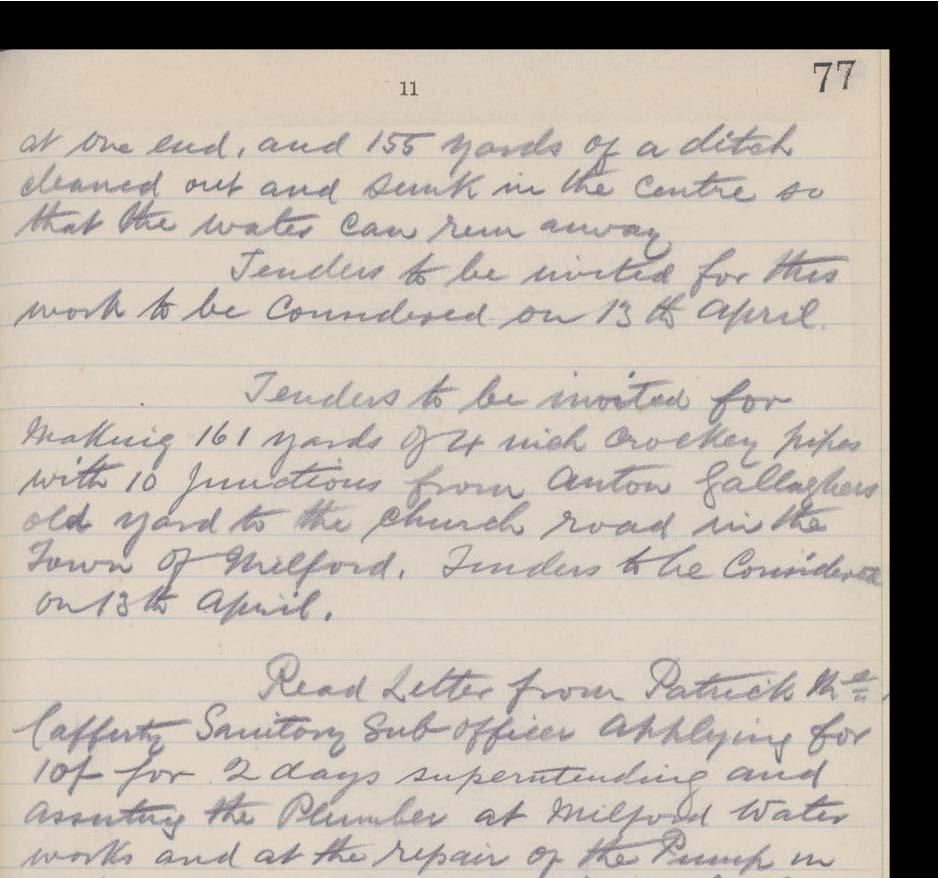 11
77
at one end, and 155 yards of a ditch
cleaned out and sunk in the centre so
that the water can run away
Tenders to be invited for this
work to be considered on 13th April.
Tenders to be invited for
Making 161 yards of 4 inch crockey pipes
with 10 junctions from Anton Gallaghers
old yard to the church road in the
Town of Milford. Tenders to be Considered
on 13th April.
Read Letter from Patrick Mc
Cafferty Sanitary Sub Officer applying for
10/- for 2 days superintending and
assisting the Plumber at Milford Water
works and at the repair of the Pump in